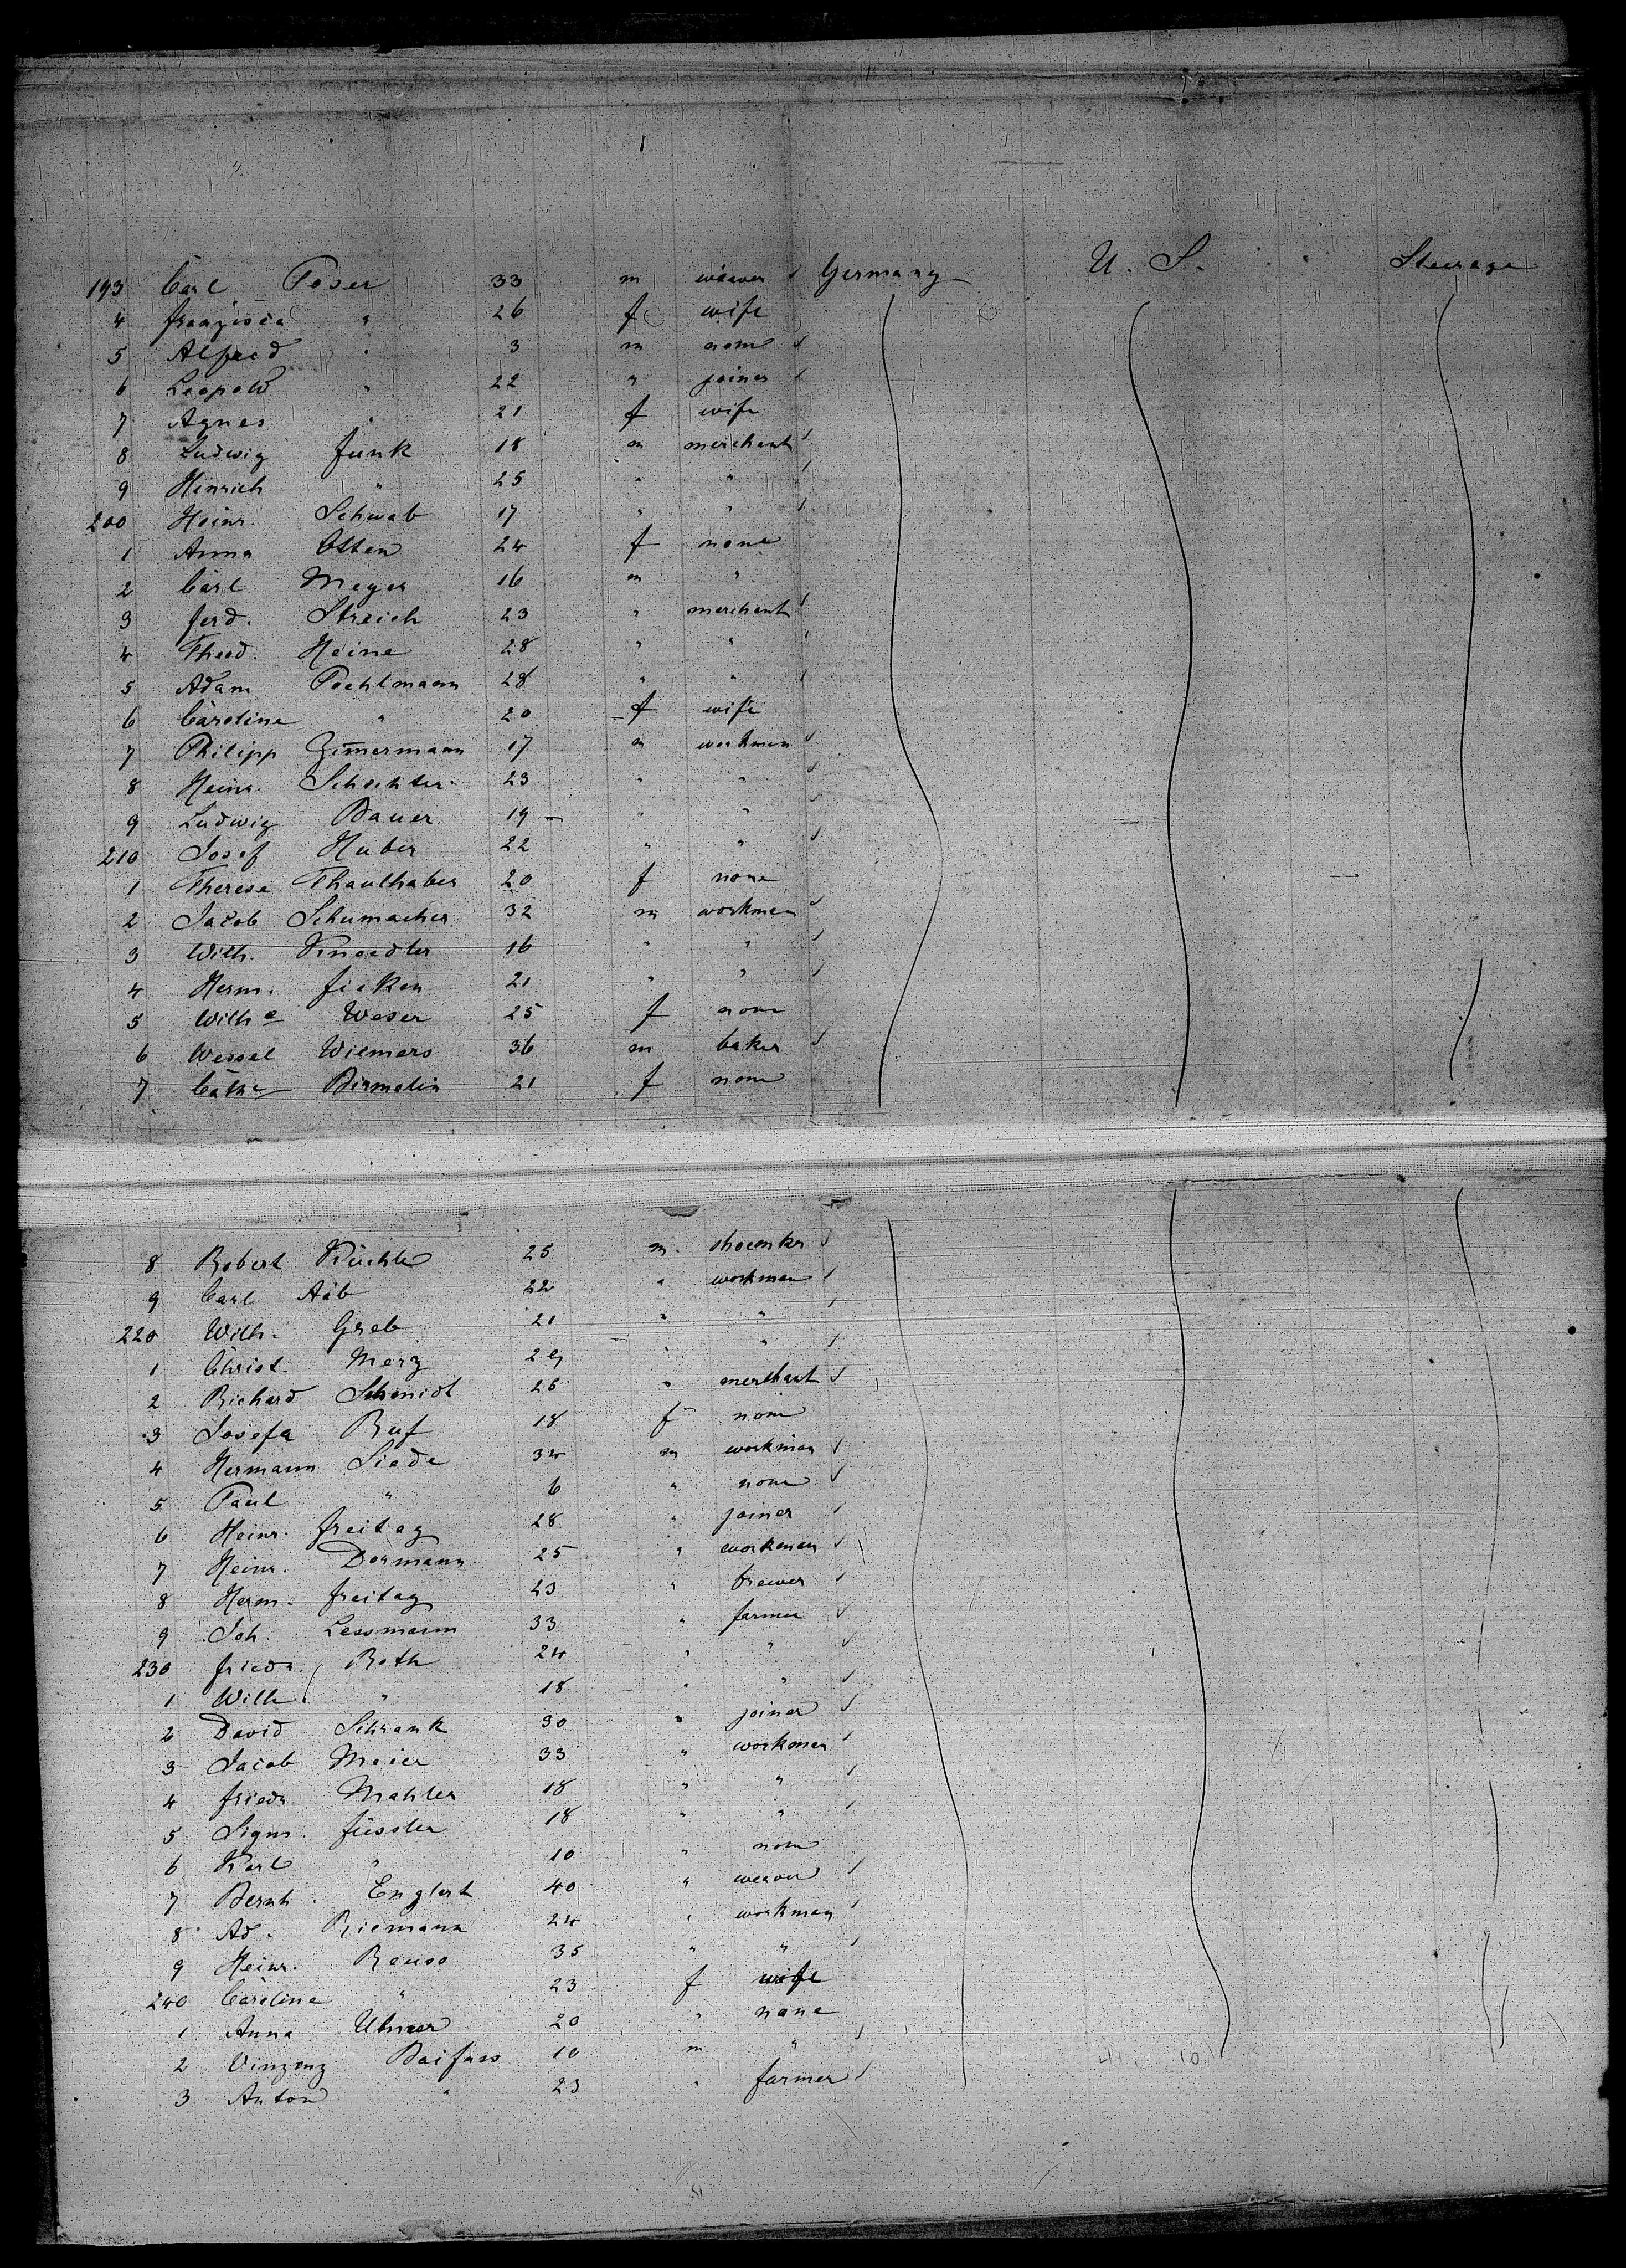 193 Carl Poser 33 m weaver Germany U. S. Steerage
4 Franzisca " 26 f wife
5 Alfred " 3 m none
6 Leopold " 22 " joiner
7 Agnes " 21 f wife
8 Ludwig Funk 18 m merchant
9 Hinrich " 25 " "
200 Heinr. Schwab 17 " "
1 Anna Otten 24 f none
2 Carl Meyer 16 m "
3 Ferd. Streich 23 " merchant
4 Theod. Heine 28 " "
5 Adam Poehlmann 28 " "
6 Caroline " 20 f wife
7 Philipp Zim̄ermann 17 m workman
8 Heinr. 23 " "
9 Ludwig Bauer 19 " "
210 Josef Huber 22 " "
1 Therese Thaulhaber 20 f none
2 Jacob Schumacher 32 m workman
3 Wilh. Knoedler 16 " "
4 Herm. Ficken 21 " "
5 Wilhe Weser 25 f none
6 Wessel Wiemers 36 m baker
7 Cathe Birmelin 21 f none
8 Robert Küchle 25 m. shoemkr
9 Carl Aab 22 " workman
220 Wilh. Greb 21 " "
1 Christ. Merz 29 " "
2 Richard Schmidt 26 " merchant
3 Josefa Ruf 18 f none
4 Hermann Siede 34 m workman
5 Paul " 6 " none
6 Heinr. Freitag 28 " joiner
7 Heinr. Dormann 25 " workman
8 Herm. Freitag 23 " brewer
9 Joh. Lessmann 33 " farmer
230 Friedr. Roth 24 " "
1 Wilh. " 18 " "
2 David Schrank 30 " joiner
3 Jacob Meier 33 " workman
4 Friedr. Mahler 18 " "
5 Sigm. Füssler 18 " "
6 Karl " 10 " none
7 Bernh. Englert 40 " weaver
8 Ad. Riemann 24 " workman
9 Heinr. Reuss 35 " "
240 Caroline " 23 f wife
1 Anna Ulmer 20 " none
2 Vinzenz Baifuss 10 m "
3 Anton " 23 " farmer